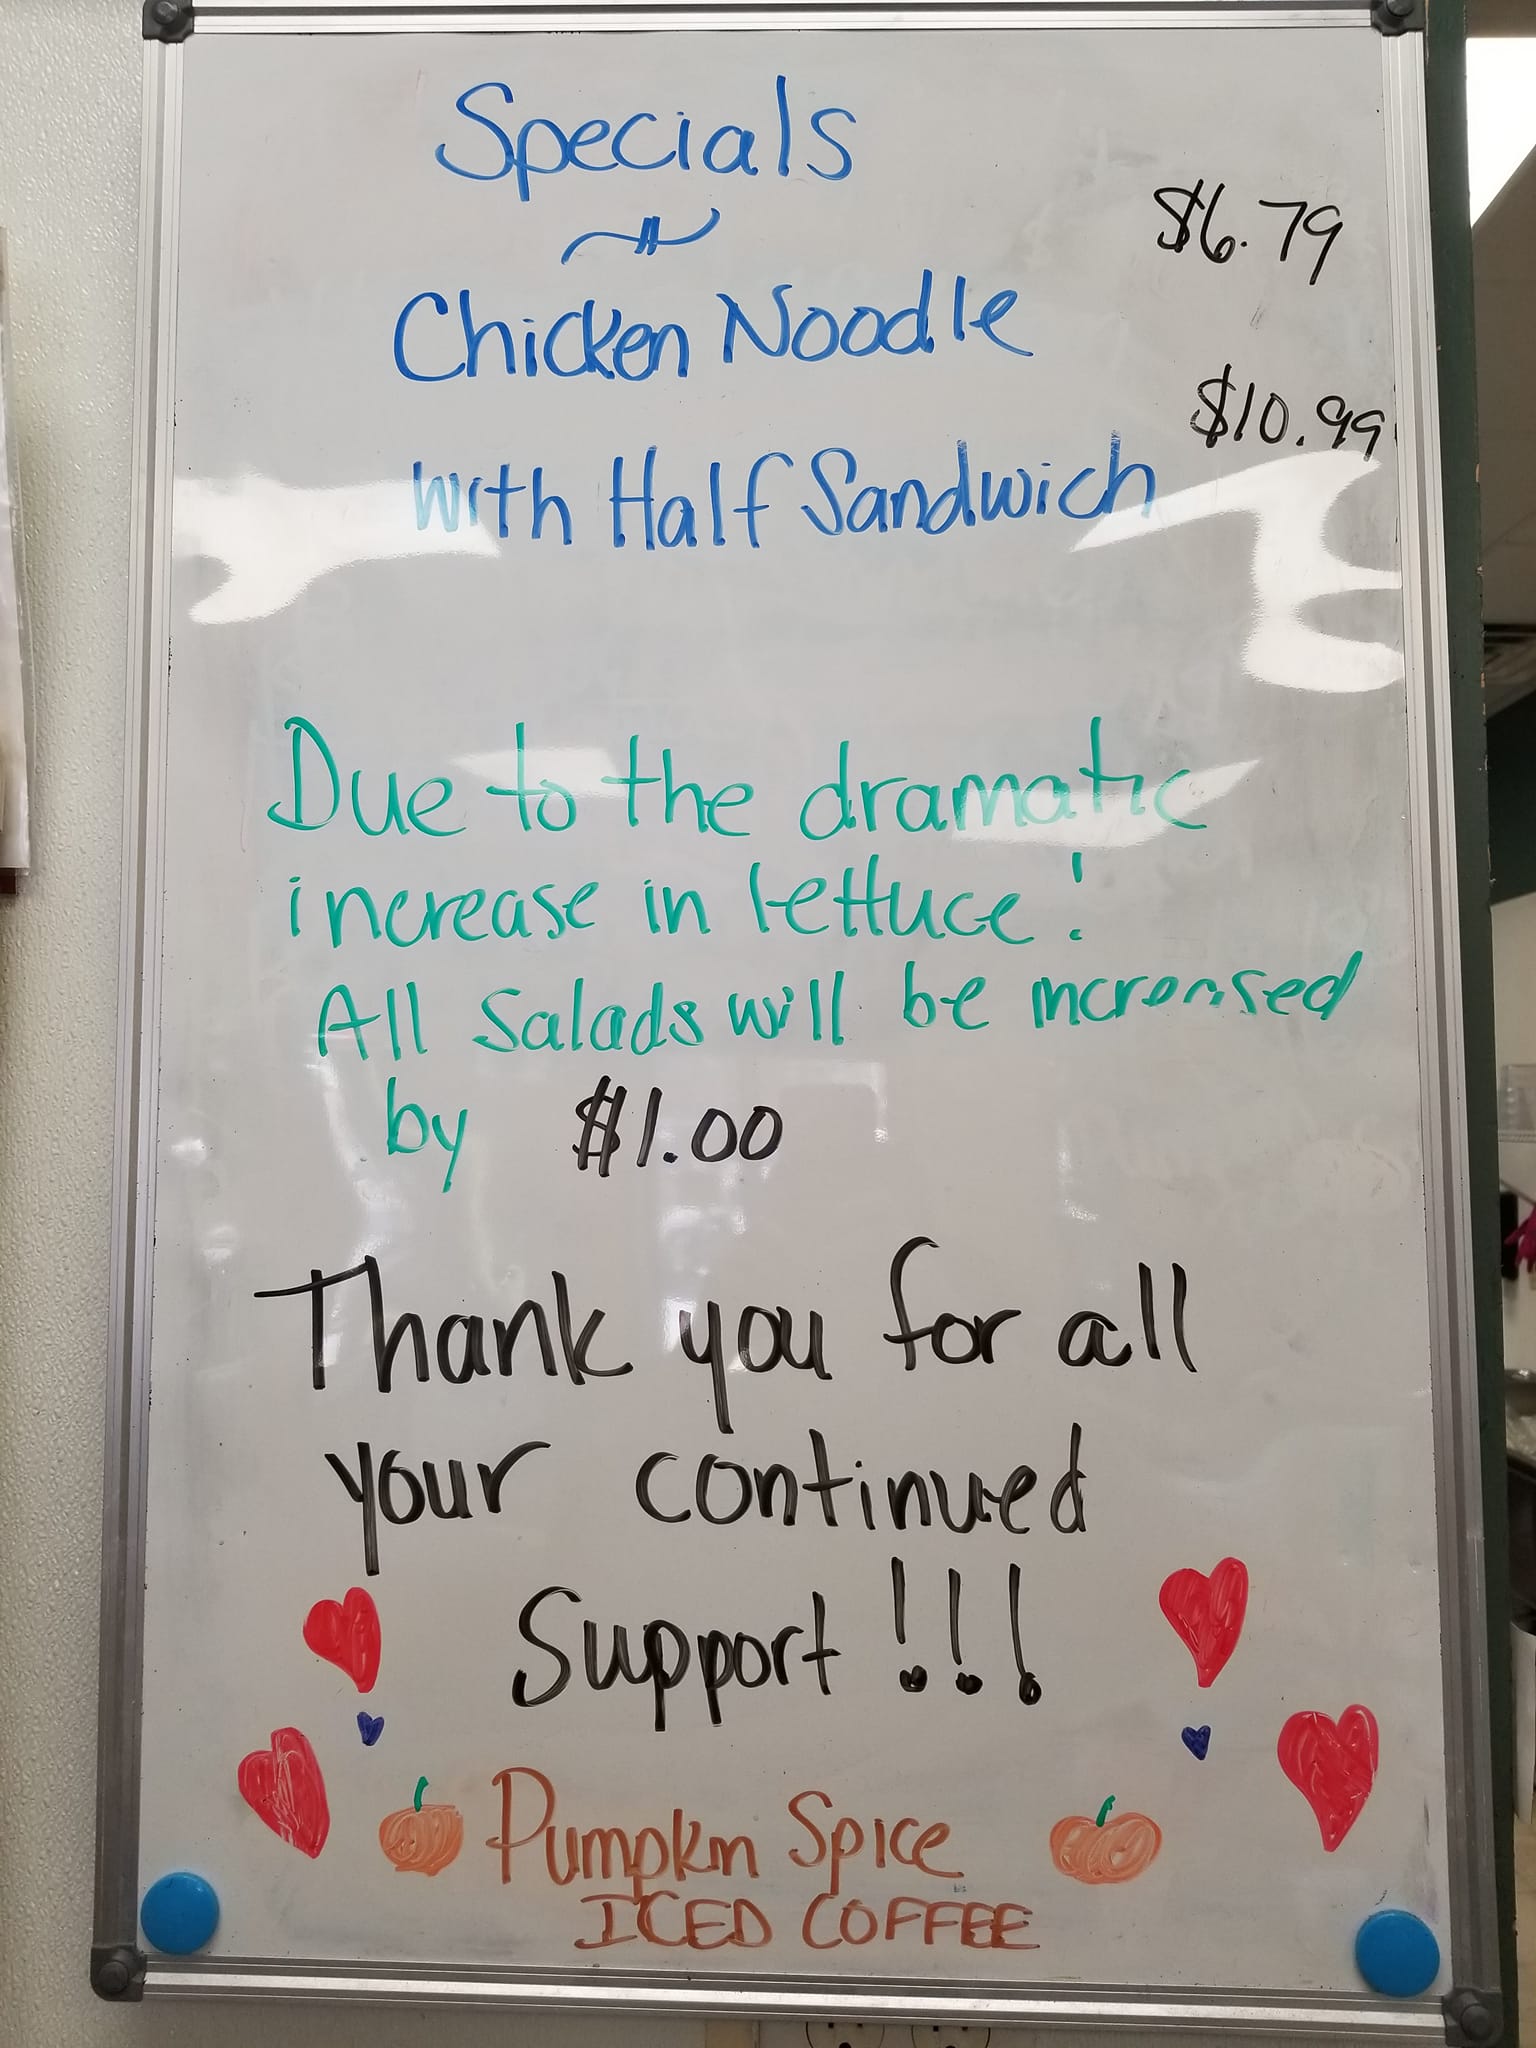 Specials
$6.79
Chicken Noodle
$10.99
with Half Sandwich
Due to the dramatic
increase in lettuce!
All Salads will be increased
by $1.00
Thank you for all
your continued
Support!!!
Pumpkin Spice
ICED COFFEE